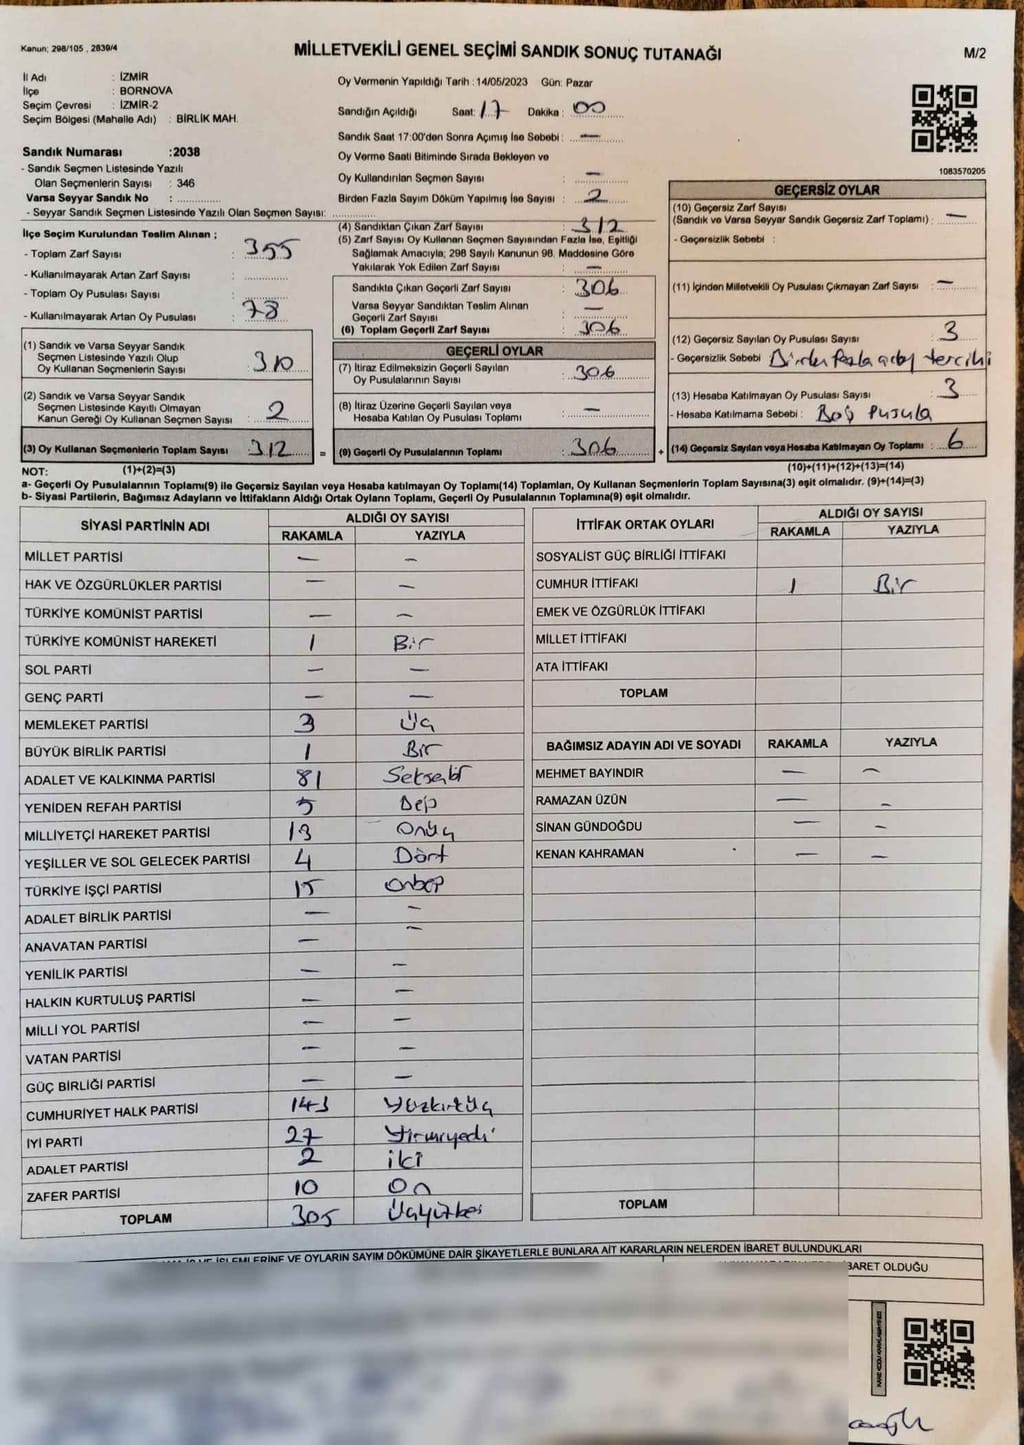 Kanun; 298/105 , 2839/4
MİLLETVEKİLİ GENEL SEÇİMİ SANDIK SONUÇ TUTANAĞI
M/2
İl Adı : İZMİR
İlçe : BORNOVA
Seçim Çevresi : İZMİR-2
Seçim Bölgesi (Mahalle Adı) : BİRLİK MAH.
Sandık Numarası :2038
- Sandık Seçmen Listesinde Yazılı
Olan Seçmenlerin Sayısı : 346
Varsa Seyyar Sandık No :
- Seyyar Sandık Seçmen Listesinde Yazılı Olan Seçmen Sayısı:
İlçe Seçim Kurulundan Teslim Alınan ;
- Toplam Zarf Sayısı : 355
- Kullanılmayarak Artan Zarf Sayısı :
- Toplam Oy Pusulası Sayısı :
- Kullanılmayarak Artan Oy Pusulası : 78
(1) Sandık ve Varsa Seyyar Sandık
Seçmen Listesinde Yazılı Olup
Oy Kullanan Seçmenlerin Sayısı : 310
(2) Sandık ve Varsa Seyyar Sandık
Seçmen Listesinde Kayıtlı Olmayan
Kanun Gereği Oy Kullanan Seçmen Sayısı : 2
(3) Oy Kullanan Seçmenlerin Toplam Sayısı : 312
Oy Vermenin Yapıldığı Tarih : 14/05/2023 Gün: Pazar
Sandığın Açıldığı Saat: 17 Dakika : 00
Sandık Saat 17:00'den Sonra Açmış İse Sebebi : —
Oy Verme Saati Bitiminde Sırada Bekleyen ve
Oy Kullandırılan Seçmen Sayısı : —
Birden Fazla Sayım Döküm Yapılmış İse Sayısı : 2
(4) Sandıktan Çıkan Zarf Sayısı : 312
(5) Zarf Sayısı Oy Kullanan Seçmen Sayısından Fazla İse, Eşitliği
Sağlamak Amacıyla; 298 Sayılı Kanunun 98. Maddesine Göre
Yakılarak Yok Edilen Zarf Sayısı : —
Sandıkta Çıkan Geçerli Zarf Sayısı : 306
Varsa Seyyar Sandıktan Teslim Alınan
Geçerli Zarf Sayısı : —
(6) Toplam Geçerli Zarf Sayısı : 306
GEÇERLİ OYLAR
(7) İtiraz Edilmeksizin Geçerli Sayılan
Oy Pusulalarının Sayısı : 306
(8) İtiraz Üzerine Geçerli Sayılan veya
Hesaba Katılan Oy Pusulası Toplamı : —
= (9) Geçerli Oy Pusulalarının Toplamı : 306
1083570205
GEÇERSİZ OYLAR
(10) Geçersiz Zarf Sayısı
(Sandık ve Varsa Seyyar Sandık Geçersiz Zarf Toplamı) : —
- Geçersizlik Sebebi :
(11) İçinden Milletvekili Oy Pusulası Çıkmayan Zarf Sayısı : —
(12) Geçersiz Sayılan Oy Pusulası Sayısı : 3
- Geçersizlik Sebebi : Birden fazla aday tercihi
(13) Hesaba Katılmayan Oy Pusulası Sayısı : 3
- Hesaba Katılmama Sebebi : Boş Pusula
+ (14) Geçersiz Sayılan veya Hesaba Katılmayan Oy Toplamı : 6
NOT: (1)+(2)=(3) (10)+(11)+(12)+(13)=(14)
a- Geçerli Oy Pusulalarının Toplamı(9) ile Geçersiz Sayılan veya Hesaba katılmayan Oy Toplamı(14) Toplamları, Oy Kullanan Seçmenlerin Toplam Sayısına(3) eşit olmalıdır. (9)+(14)=(3)
b- Siyasi Partilerin, Bağımsız Adayların ve İttifakların Aldığı Ortak Oyların Toplamı, Geçerli Oy Pusulalarının Toplamına(9) eşit olmalıdır.
SİYASİ PARTİNİN ADI ALDIĞI OY SAYISI
RAKAMLA YAZIYLA
MİLLET PARTİSİ — —
HAK VE ÖZGÜRLÜKLER PARTİSİ — —
TÜRKİYE KOMÜNİST PARTİSİ — —
TÜRKİYE KOMÜNİST HAREKETİ 1 Bir
SOL PARTİ — —
GENÇ PARTİ — —
MEMLEKET PARTİSİ 3 Üç
BÜYÜK BİRLİK PARTİSİ 1 Bir
ADALET VE KALKINMA PARTİSİ 81 Seksenbir
YENİDEN REFAH PARTİSİ 5 Beş
MİLLİYETÇİ HAREKET PARTİSİ 13 Onüç
YEŞİLLER VE SOL GELECEK PARTİSİ 4 Dört
TÜRKİYE İŞÇİ PARTİSİ 15 Onbeş
ADALET BİRLİK PARTİSİ — —
ANAVATAN PARTİSİ — —
YENİLİK PARTİSİ — —
HALKIN KURTULUŞ PARTİSİ — —
MİLLİ YOL PARTİSİ — —
VATAN PARTİSİ — —
GÜÇ BİRLİĞİ PARTİSİ — —
CUMHURİYET HALK PARTİSİ 143 Yüzkırküç
İYİ PARTİ 27 Yirmiyedi
ADALET PARTİSİ 2 iki
ZAFER PARTİSİ 10 On
TOPLAM 305 Üçyüzbeş
İTTİFAK ORTAK OYLARI ALDIĞI OY SAYISI
RAKAMLA YAZIYLA
SOSYALİST GÜÇ BİRLİĞİ İTTİFAKI
CUMHUR İTTİFAKI 1 Bir
EMEK VE ÖZGÜRLÜK İTTİFAKI
MİLLET İTTİFAKI
ATA İTTİFAKI
TOPLAM
BAĞIMSIZ ADAYIN ADI VE SOYADI RAKAMLA YAZIYLA
MEHMET BAYINDIR — —
RAMAZAN ÜZÜN — —
SİNAN GÜNDOĞDU — —
KENAN KAHRAMAN — —
TOPLAM
İŞLEMLERİNE VE OYLARIN SAYIM DÖKÜMÜNE DAİR ŞİKAYETLERLE BUNLARA AİT KARARLARIN NELERDEN İBARET BULUNDUKLARI
İBARET OLDUĞU